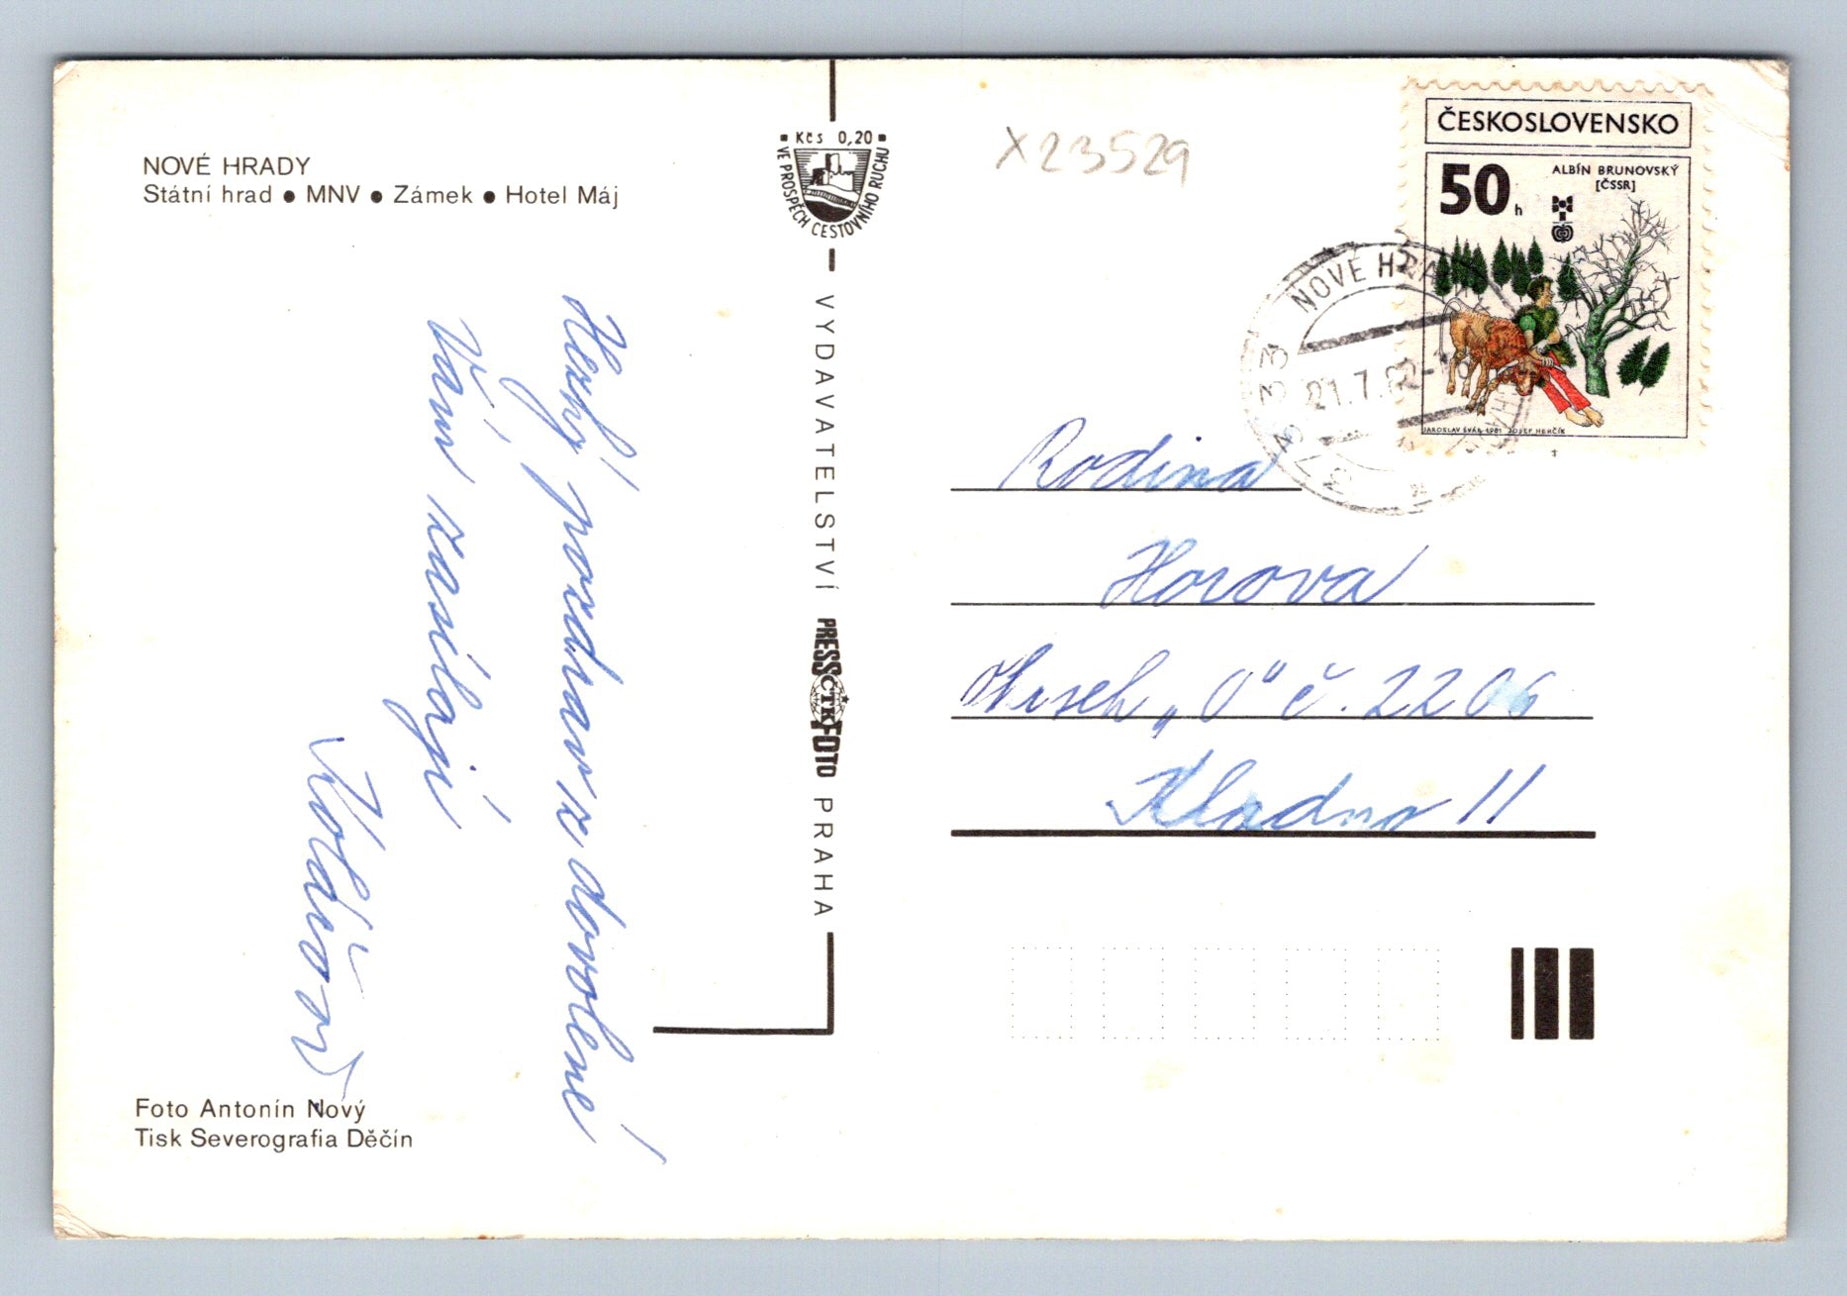 NOVÉ HRADY
Státní hrad ● MNV ● Zámek ● Hotel Máj
Hezký pozdrav z dovolené
Vám zasílají
Kolářovi
Foto Antonín Nový
Tisk Severografia Děčín
Kčs 0,20
VE PROSPĚCH CESTOVNÍHO RUCHU
VYDAVATELSTVÍ PRESSFOTO PRAHA
ČTK
X23529
ČESKOSLOVENSKO
50 h
ALBÍN BRUNOVSKÝ
[ČSSR]
JAROSLAV ŠVÁB 1981 JOSEF HERČÍK
NOVÉ HRA
21.7.8
373 33
Rodina
Horova
„O" č. 2206
Kladno II